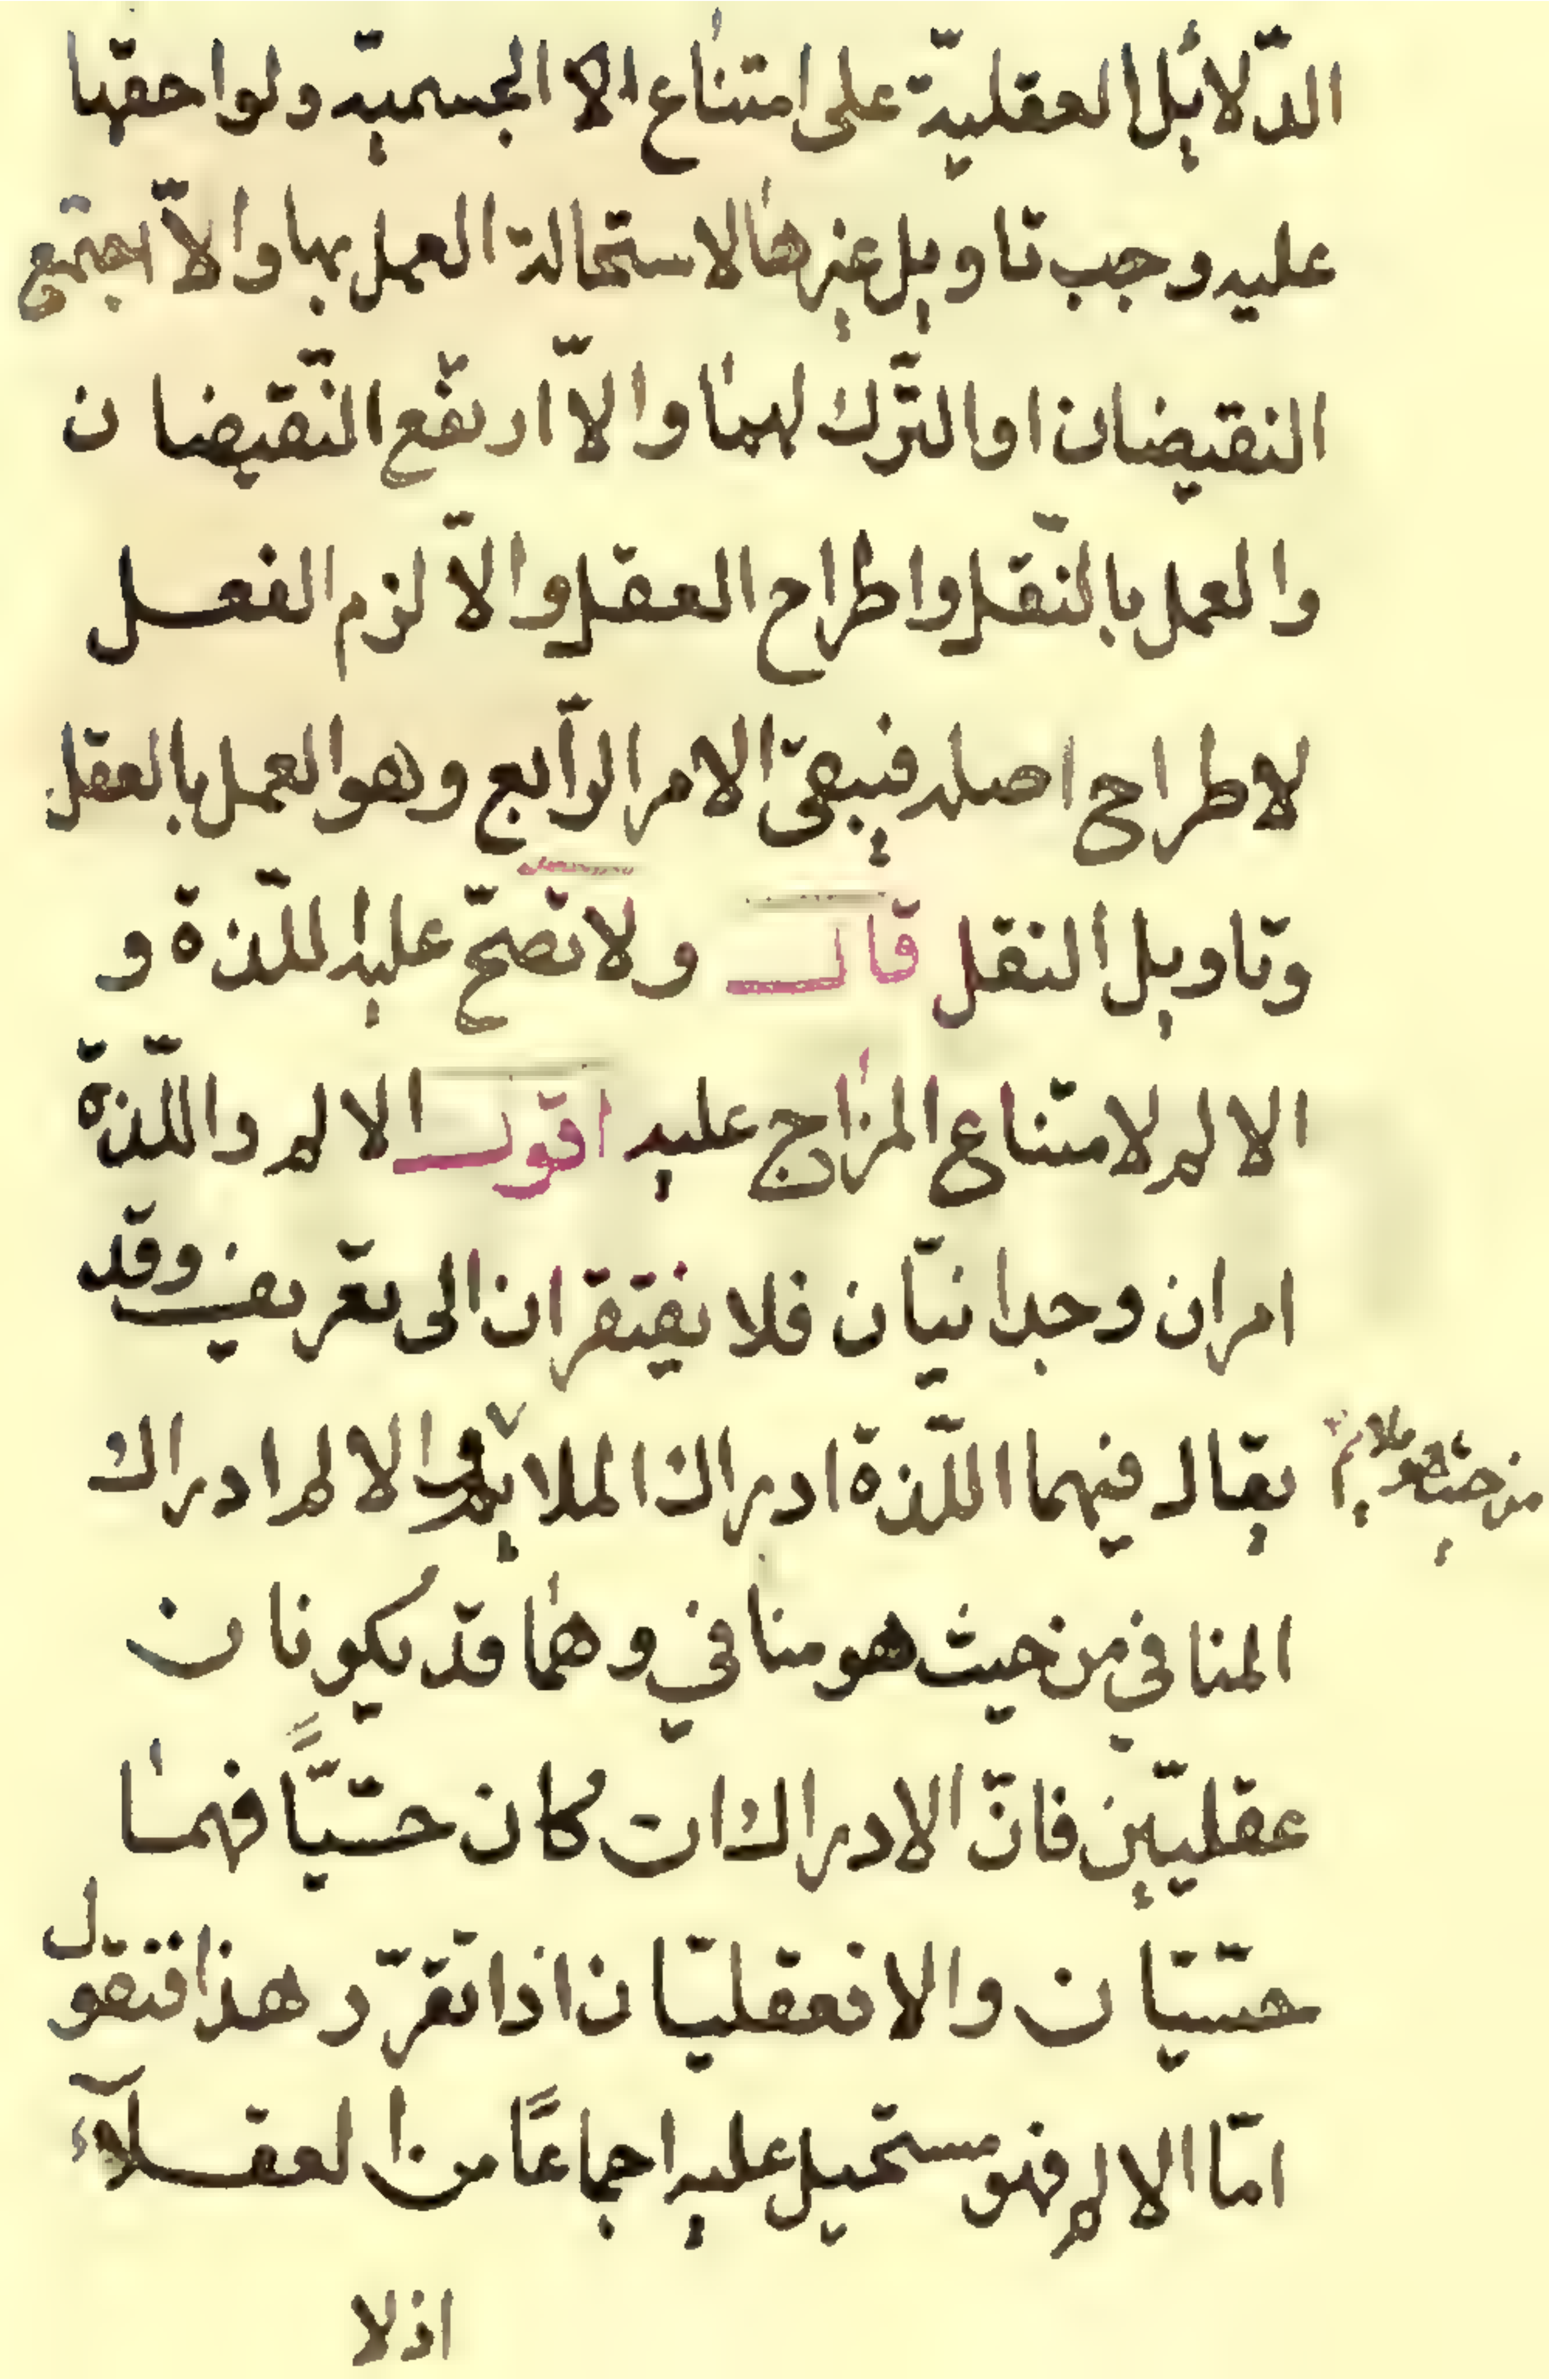 الدّلائل العقليّة على امتناع الا الجسميّه ولواحقها
عليه وجب تاويل غيرها لاستحالة العمل بها والاّ اجتمع
النقيضان او الترك لهما والاّ ارتفع النّقيضان
والعمل بالنّقل واطراح العقل والاّ لزم الفعل
لاطراح اصله فيبقىّ الامر الرّابع وهو العمل بالعقل
وتاويل النقل قال ولا تصحّ عليه اللّذة و
الالم لامتناع المزاج عليه اقول الالم واللّذة
امران وجدانيّان فلا يفتقران الى تعريف وقد
يقال فيهما اللّذة ادراك الملايم والالم ادراك
من حيث هو ملايم
المنافي من حيث هو منافي وهما قد يكونان
عقليّين فانّ الادراك ان كان حسّيّاً فهما
حسّيّان والا فعقليّان اذا تقرّر هذا فنقول
امّا الالم فهو مستحيل عليه اجماعًا من العقلآء
اذ لا